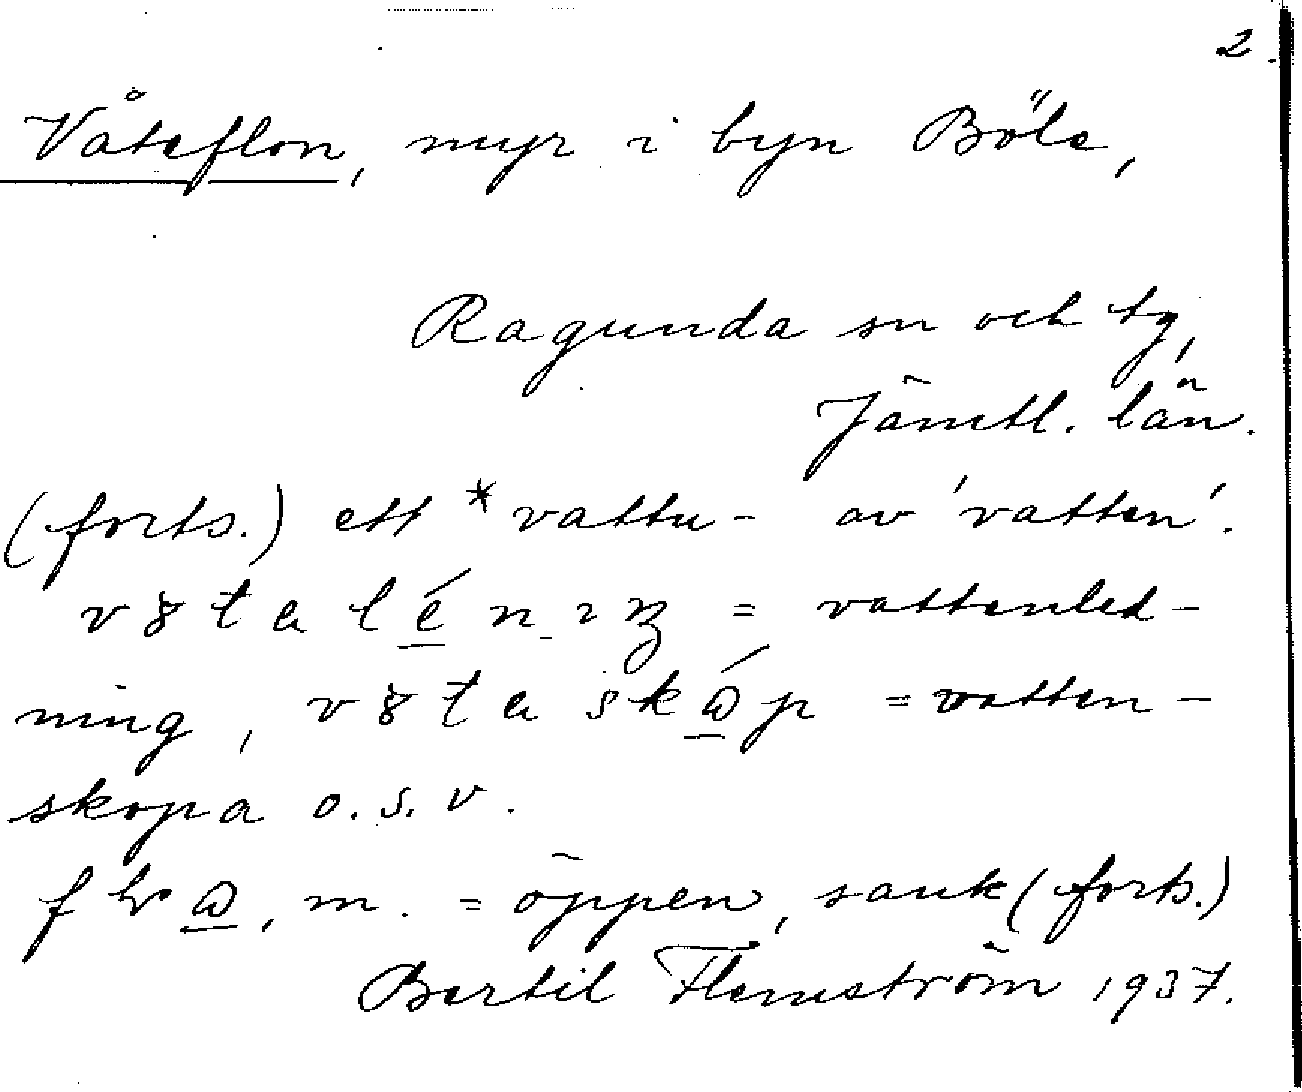 2.
Våteflon, myr i byn Böle,
Ragunda sn och tg,
Jämtl. län.
(forts.) ett *vattu- av 'vatten'.
= vattenled-
ning, = vatten-
skopa o.s.v.
, m. = öppen, sank (forts.)
Bertil Flemström 1937.